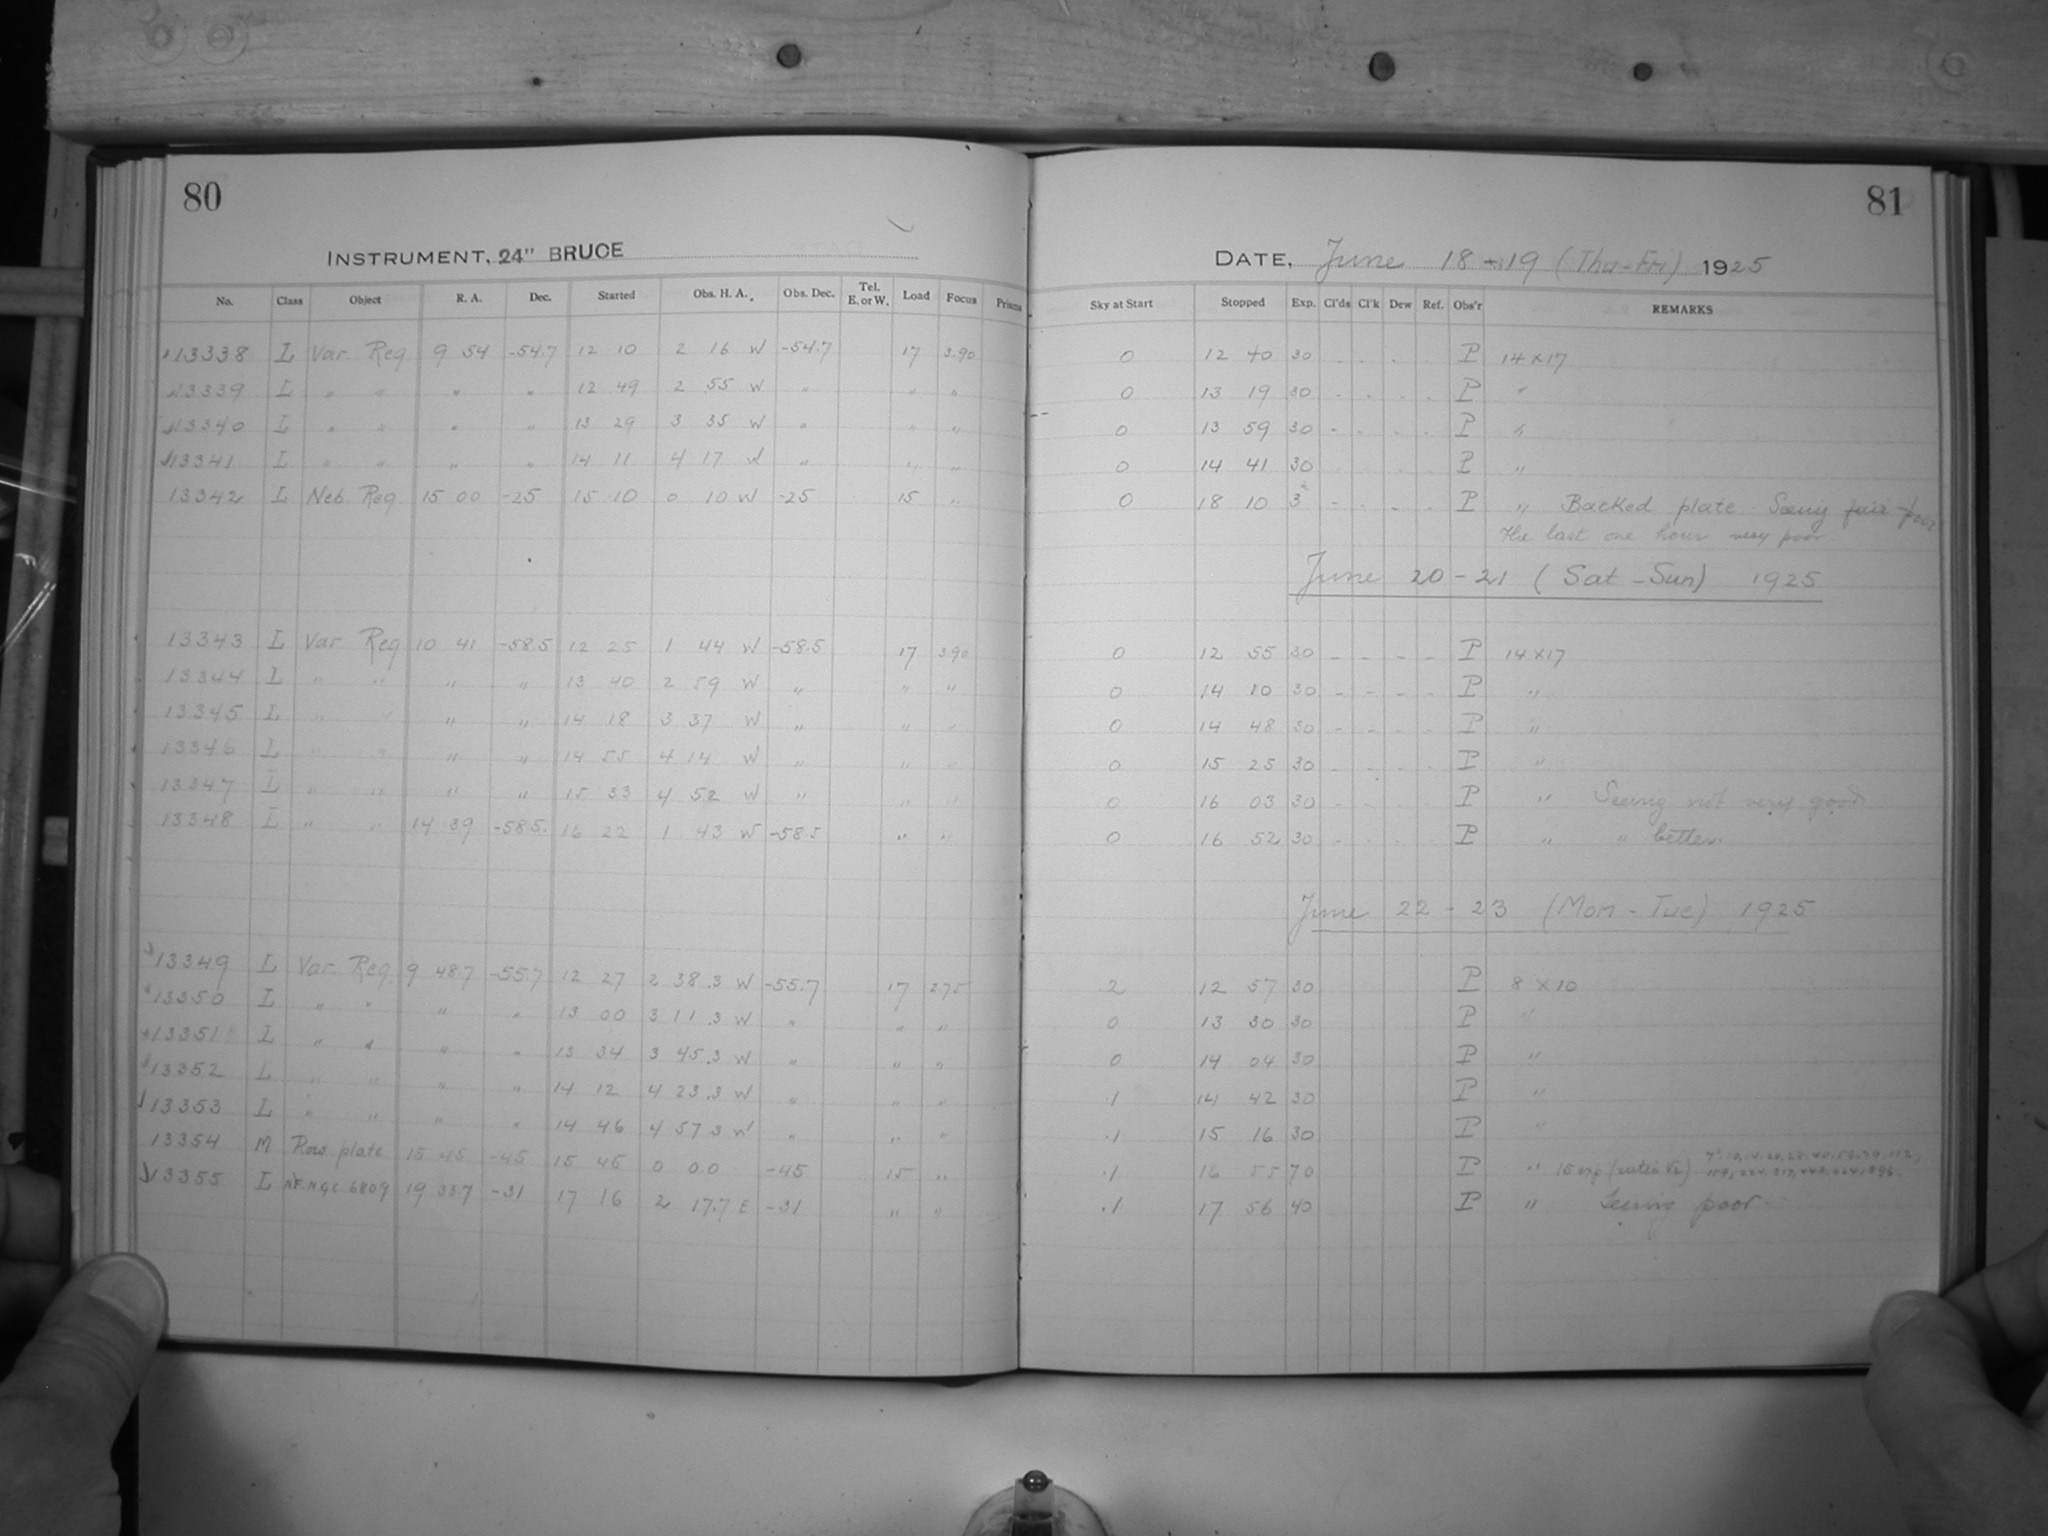 80
INSTRUMENT, 24" BRUCE
No. Class Object R. A. Dec. Started Obs. H. A. Obs. Dec. Tel. E. or W. Load Focus Prisms
13338 L Var. Reg 9 54 -54.7 12 10 2 16 W -54.7 17 3.90
13339 L " " " " 12 49 2 55 W " " "
13340 L " " " " 13 29 3 35 W " " "
13341 L " " " " 14 11 4 17 W " " "
13342 L Neb. Reg 15 00 -25 15 10 0 10 W -25 15 "
13343 L Var. Reg 10 41 -58.5 12 25 1 44 W -58.5 17 3.90
13344 L " " " " 13 40 2 59 W " " "
13345 L " " " " 14 18 3 37 W " " "
13346 L " " " " 14 55 4 14 W " " "
13347 L " " " " 15 33 4 52 W " " "
13348 L " " 14 39 -58.5 16 22 1 43 W -58.5 " "
13349 L Var. Reg. 9 48.7 -55.7 12 27 2 38.3 W -55.7 17 2.75
13350 L " " " " 13 00 3 11.3 W " " "
13351 L " " " " 13 34 3 45.3 W " " "
13352 L " " " " 14 12 4 23.3 W " " "
13353 L " " " " 14 46 4 57.3 W " " "
13354 M plate 15 45 -45 15 45 0 0.0 -45 15 "
13355 L NGC 6809 19 33.7 -31 17 16 2 17.7 E -31 " "
81
DATE, June 18-19 (Thu-Fri) 1925
Sky at Start Stopped Exp. Cl'ds Cl'k Dew Ref. Obs'r REMARKS
0 12 40 30 - - - - P 14x17
0 13 19 30 - - - - P "
0 13 59 30 - - - - P "
0 14 41 30 - - - - P "
0 18 10 3h - - - - P " Backed plate. Seeing fair - poor
The last one hour very poor.
June 20-21 (Sat-Sun) 1925
0 12 55 30 - - - - P 14x17
0 14 10 30 - - - - P "
0 14 48 30 - - - - P "
0 15 25 30 - - - - P "
0 16 03 30 - - - - P " Seeing not very good
0 16 52 30 - - - - P " " better.
June 22-23 (Mon-Tue) 1925
.2 12 57 30 P 8 x 10
0 13 30 30 P "
0 14 04 30 P "
.1 14 42 30 P "
.1 15 16 30 P "
.1 16 55 70 P " 15 exp (ratio √2)
.1 17 56 40 P " Seeing poor